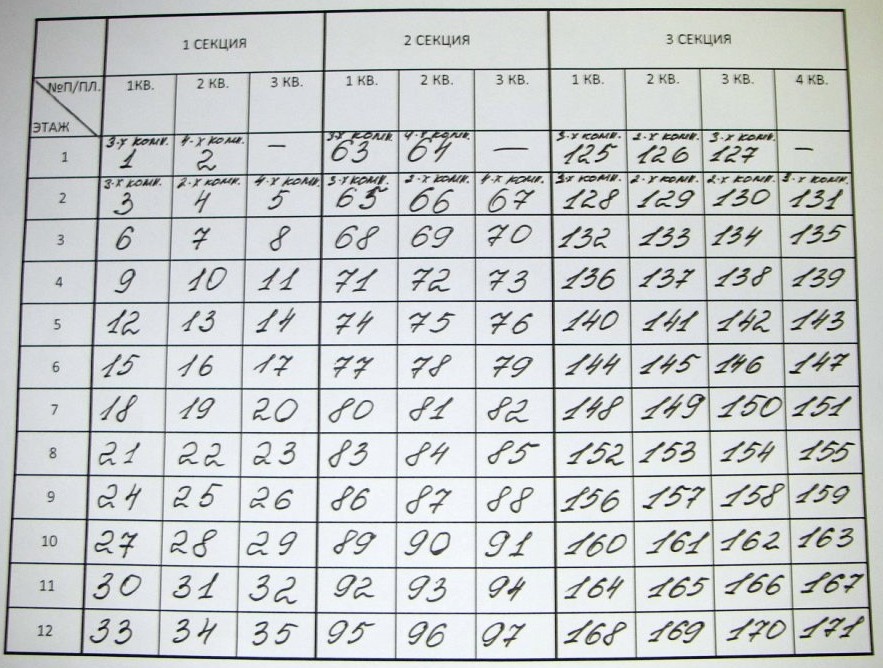 1 СЕКЦИЯ 2 СЕКЦИЯ 3 СЕКЦИЯ
№П/ПЛ. 1КВ. 2 КВ. 3 КВ. 1 КВ. 2 КВ. 3 КВ. 1 КВ. 2 КВ. 3 КВ. 4 КВ.
ЭТАЖ
3-х комн. 4-х комн. 3-х комн. 4-х комн. 3-х комн. 2-х комн. 3-х комн.
1 1 2 — 63 64 — 125 126 127 —
3-х комн. 2-х комн. 4-х комн. 3-х комн. 2-х комн. 4-х комн. 3-х комн. 2-х комн. 2-х комн. 3-х комн.
2 3 4 5 65 66 67 128 129 130 131
3 6 7 8 68 69 70 132 133 134 135
4 9 10 11 71 72 73 136 137 138 139
5 12 13 14 74 75 76 140 141 142 143
6 15 16 17 77 78 79 144 145 146 147
7 18 19 20 80 81 82 148 149 150 151
8 21 22 23 83 84 85 152 153 154 155
9 24 25 26 86 87 88 156 157 158 159
10 27 28 29 89 90 91 160 161 162 163
11 30 31 32 92 93 94 164 165 166 167
12 33 34 35 95 96 97 168 169 170 171